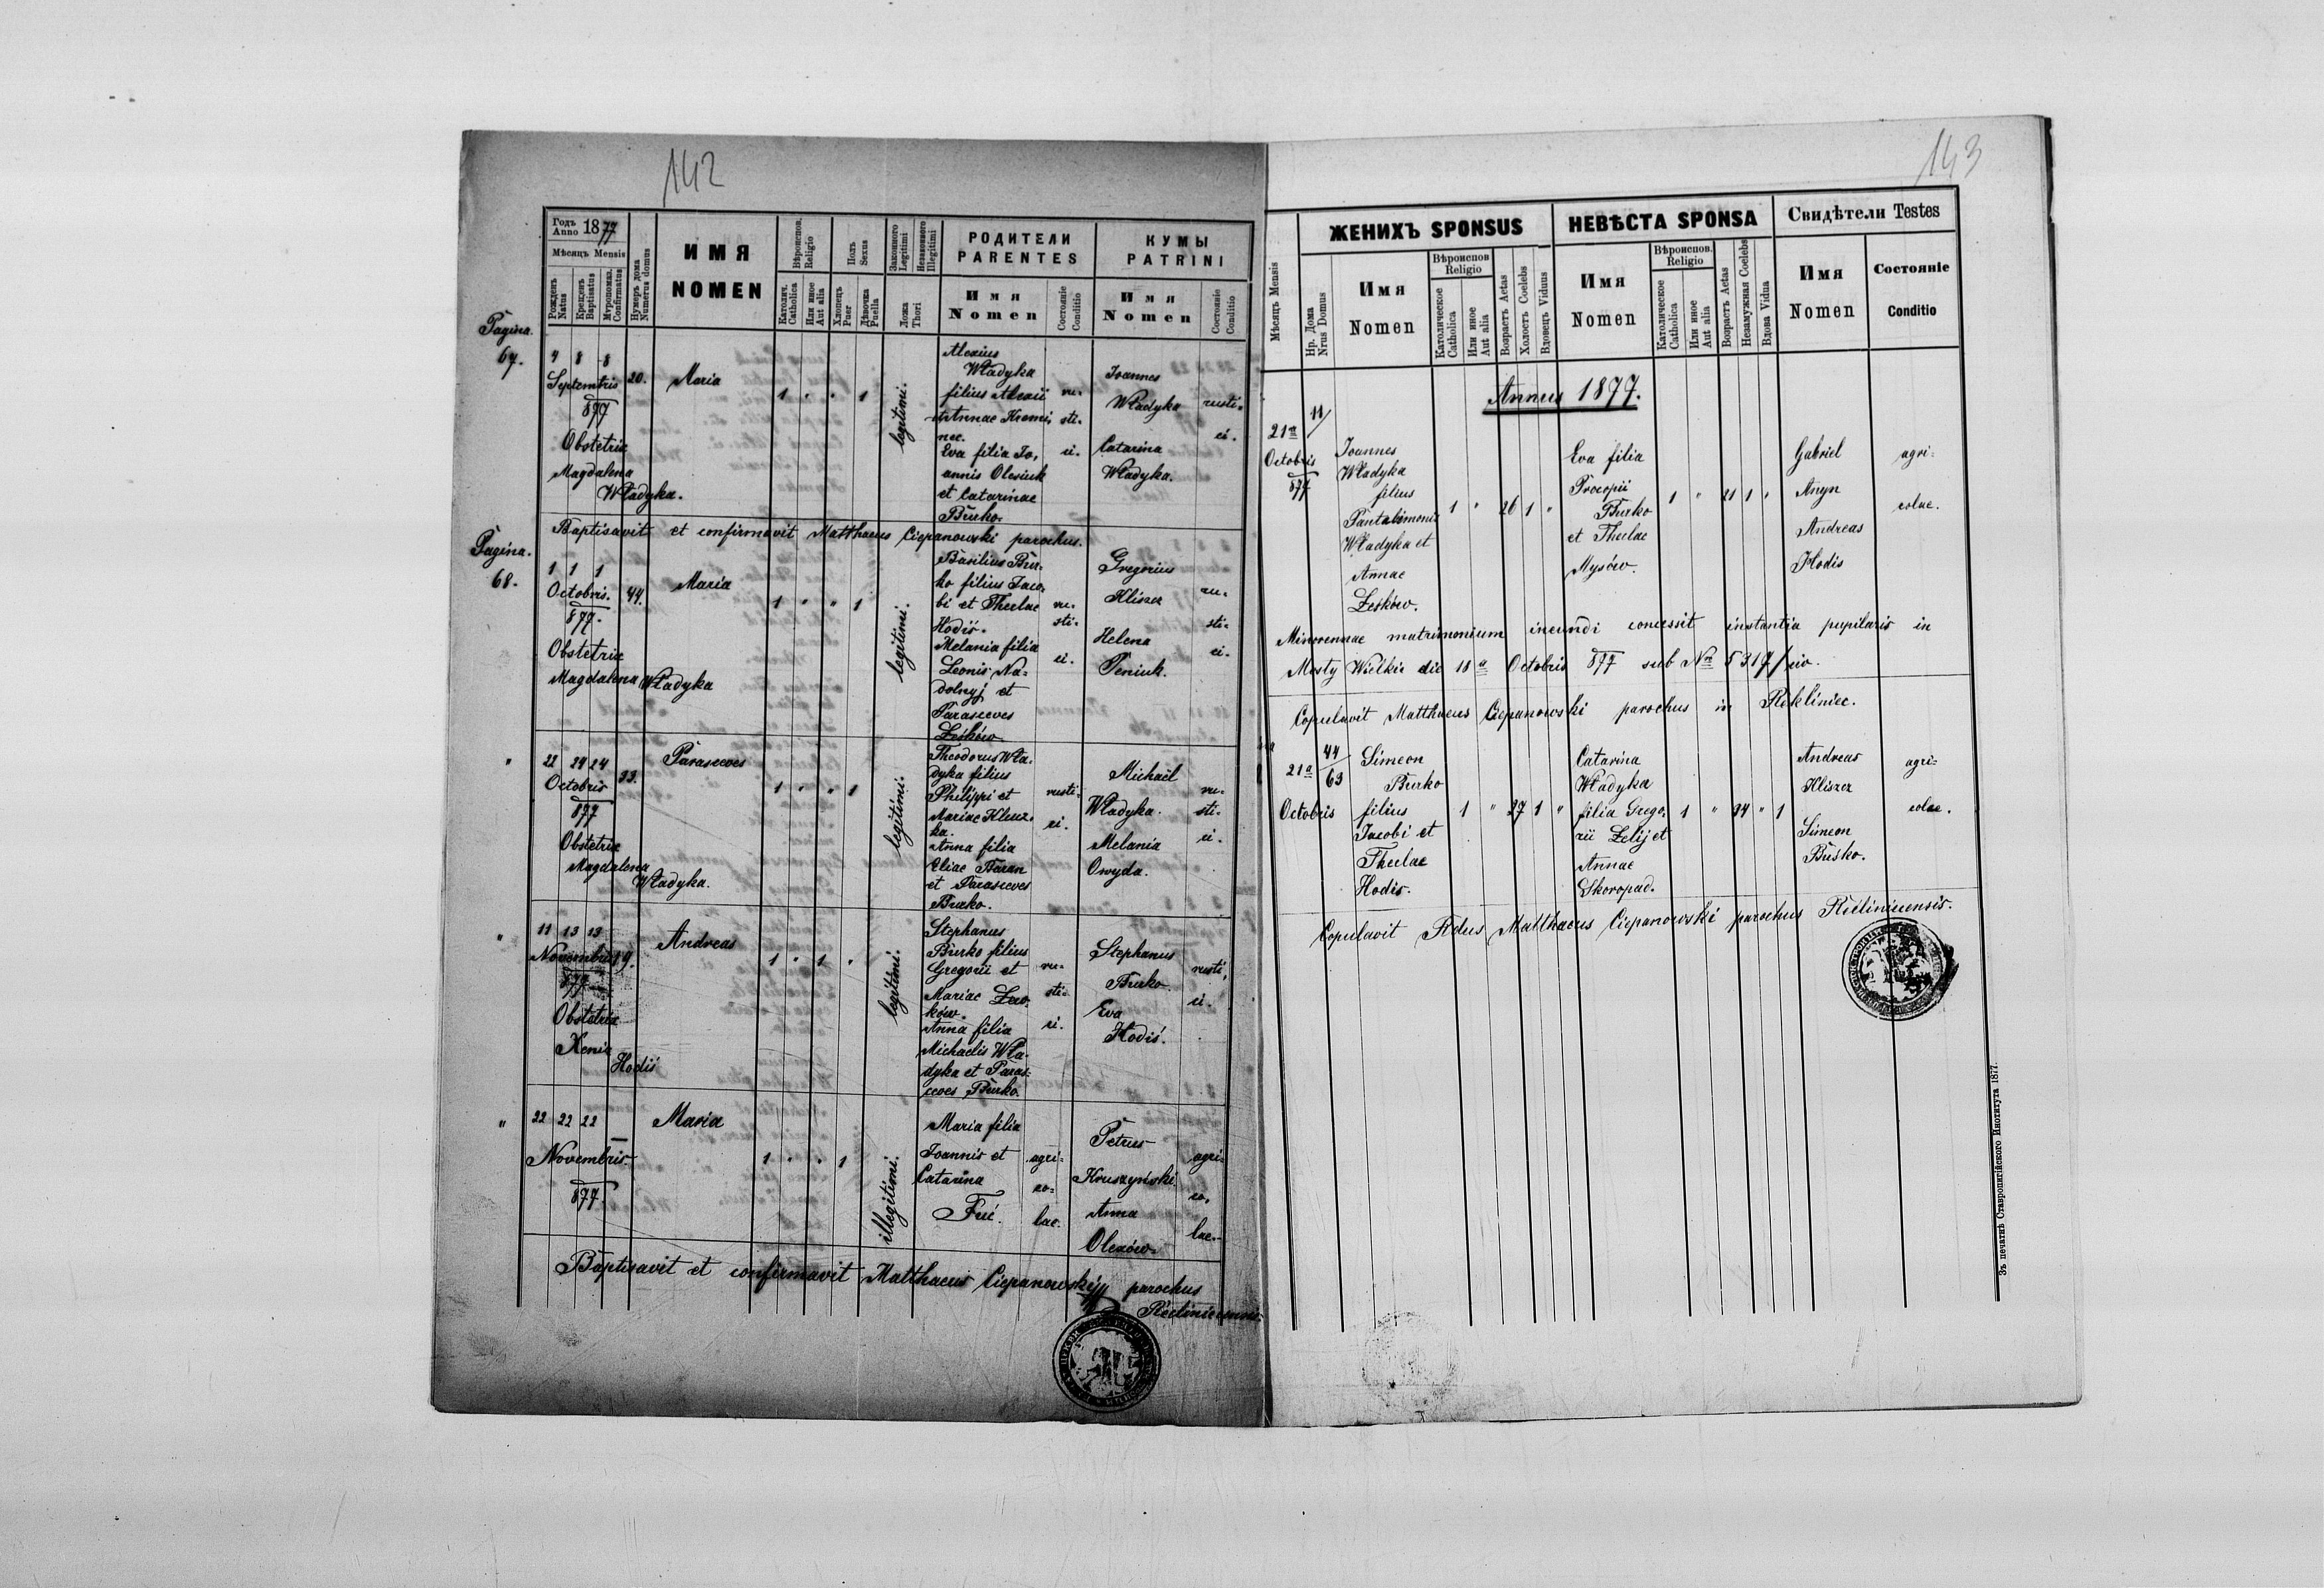 142
Годъ Anno 1877
Мѣсяць Mensis
Рожденъ Natus
Крещенъ Baptisatus
Муропомаз. Confirmatus
Нумеръ дома Numerus domus
ИМЯ
NOMEN
Вѣроиспов. Religio
Католич. Catholica
Или иное Aut alia
Полъ Sexus
Хлопецъ Puer
Дѣвочка Puella
Законного Legitimi
Незаконного Illegitimi
Ложа Thori
РОДИТЕЛИ
PARENTES
Имя
Nomen
Состояніе Conditio
КУМЫ
PATRINI
Имя
Nomen
Состояніе Conditio
Pagina.
67.
7 8 8
Septembris
877
20.
Obstetrix
Magdalena
Władyka.
Maria
1 " " 1
legitimi.
Alexius
Władyka
filius Alexii
et Annae Kremi,
nec.
Eva filia Jo,
annis Olexiuk
et Catarinae
Burko.
ru-
sti-
ci.
Joannes
Władyka
Catarina
Władyka.
rusti-
ci.
Baptisavit et confirmavit Matthaeus Ciepanowski parochus.
Pagina.
68.
1 1 1
Octobris.
877.
44.
Obstetrix
Magdalena Władyka
Maria
1 " " 1
legitimi.
Basilius Bur-
ko filius Jaco-
bi et Theclae
Hodis.
Melania filia
Leonis Na-
dolnyj et
Parasceves
Leśków
ru-
sti-
ci.
Gregorius
Kliszcz
Helena
Peniuk.
ru-
sti-
ci.
"
22 24 24
Octobris
877
33.
Obstetrix
Magdalena
Władyka.
Parasceves
1 " " 1
legitimi.
Theodorus Wła-
dyka filius
Philippi et
Mariae Klesz-
ka.
Anna filia
Eliae Baran
et Parasceves
Burko.
rusti-
ci.
Michaël
Władyka.
Melania
Owyda.
ru-
sti-
ci.
"
11 13 13
Novembris
877
19.
Obstetrix
Xenia
Hodis
Andreas
1 " 1 "
legitimi.
Stephanus
Burko filius
Gregorii et
Mariae Leś-
ków.
Anna filia
Michaelis Wła-
dyka et Paras-
ceves Burko.
ru-
sti-
ci.
Stephanus
Burko
Eva
Hodiś.
rusti-
ci.
"
22 22 22
Novembris
877.
Maria
1 " " 1
illegitimi.
Maria filia
Joannis et
Catarina
Fuć.
agri-
co-
lae.
Petrus
Kruszyński
Anna
Olexów.
agri-
co-
lae.
Baptisavit et confirmavit Matthaeus Ciepanowski parochus
Rekliniecensis.
143
Мѣсяць Mensis
Нр. Дома Nrus Domus
ЖЕНИХЪ SPONSUS
Имя
Nomen
Вѣроиспов Religio
Католическое Catholica
Или иное Aut alia
Возрастъ Aetas
Холостъ Coelebs
Вдовецъ Viduus
НЕВѢСТА SPONSA
Имя
Nomen
Вѣроиспов. Religio
Католическое Catholica
Или иное Aut alia
Возрастъ Aetas
Незамужная Coelebs
Вдова Vidua
Свидѣтели Testes
Имя
Nomen
Состояніе
Conditio
Annus 1877.
21a
Octobris
877
11/
Joannes
Władyka
filius
Pantalimonis
Władyka et
Annae
Leśków.
1 " 26 1 "
Eva filia
Procopii
Burko
et Theclae
Mysów.
1 " 21 1 "
Gabriel
Anyn
Andreas
Hodis
agri-
colae.
Minorennae matrimonium ineundi concessit instantia pupilaris in
Mosty Wielkie die 18a Octobris 877 sub Nro 5317/civ.
Copulavit Matthaeus Ciepanowski parochus in Rekliniec.
21a
Octobris
44/63
Simeon
Burko
filius
Jacobi et
Theclae
Hodis.
1 " 27 1 "
Catarina
Władyka
filia Grego-
rii Lelij et
Annae
Skoropad.
1 " 34 " 1
Andreas
Kliszcz
Simeon
Busko.
agri-
colae.
Copulavit Rdus Matthaeus Ciepanowski parochus Rekliniecensis.
Зъ печатнѣ Ставропигійского Института 1877.